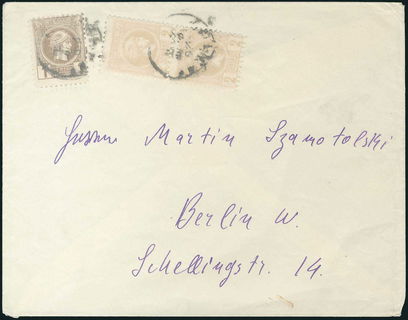 Herrn Martin Szamotolski
Berlin W.
Schellingstr. 14.